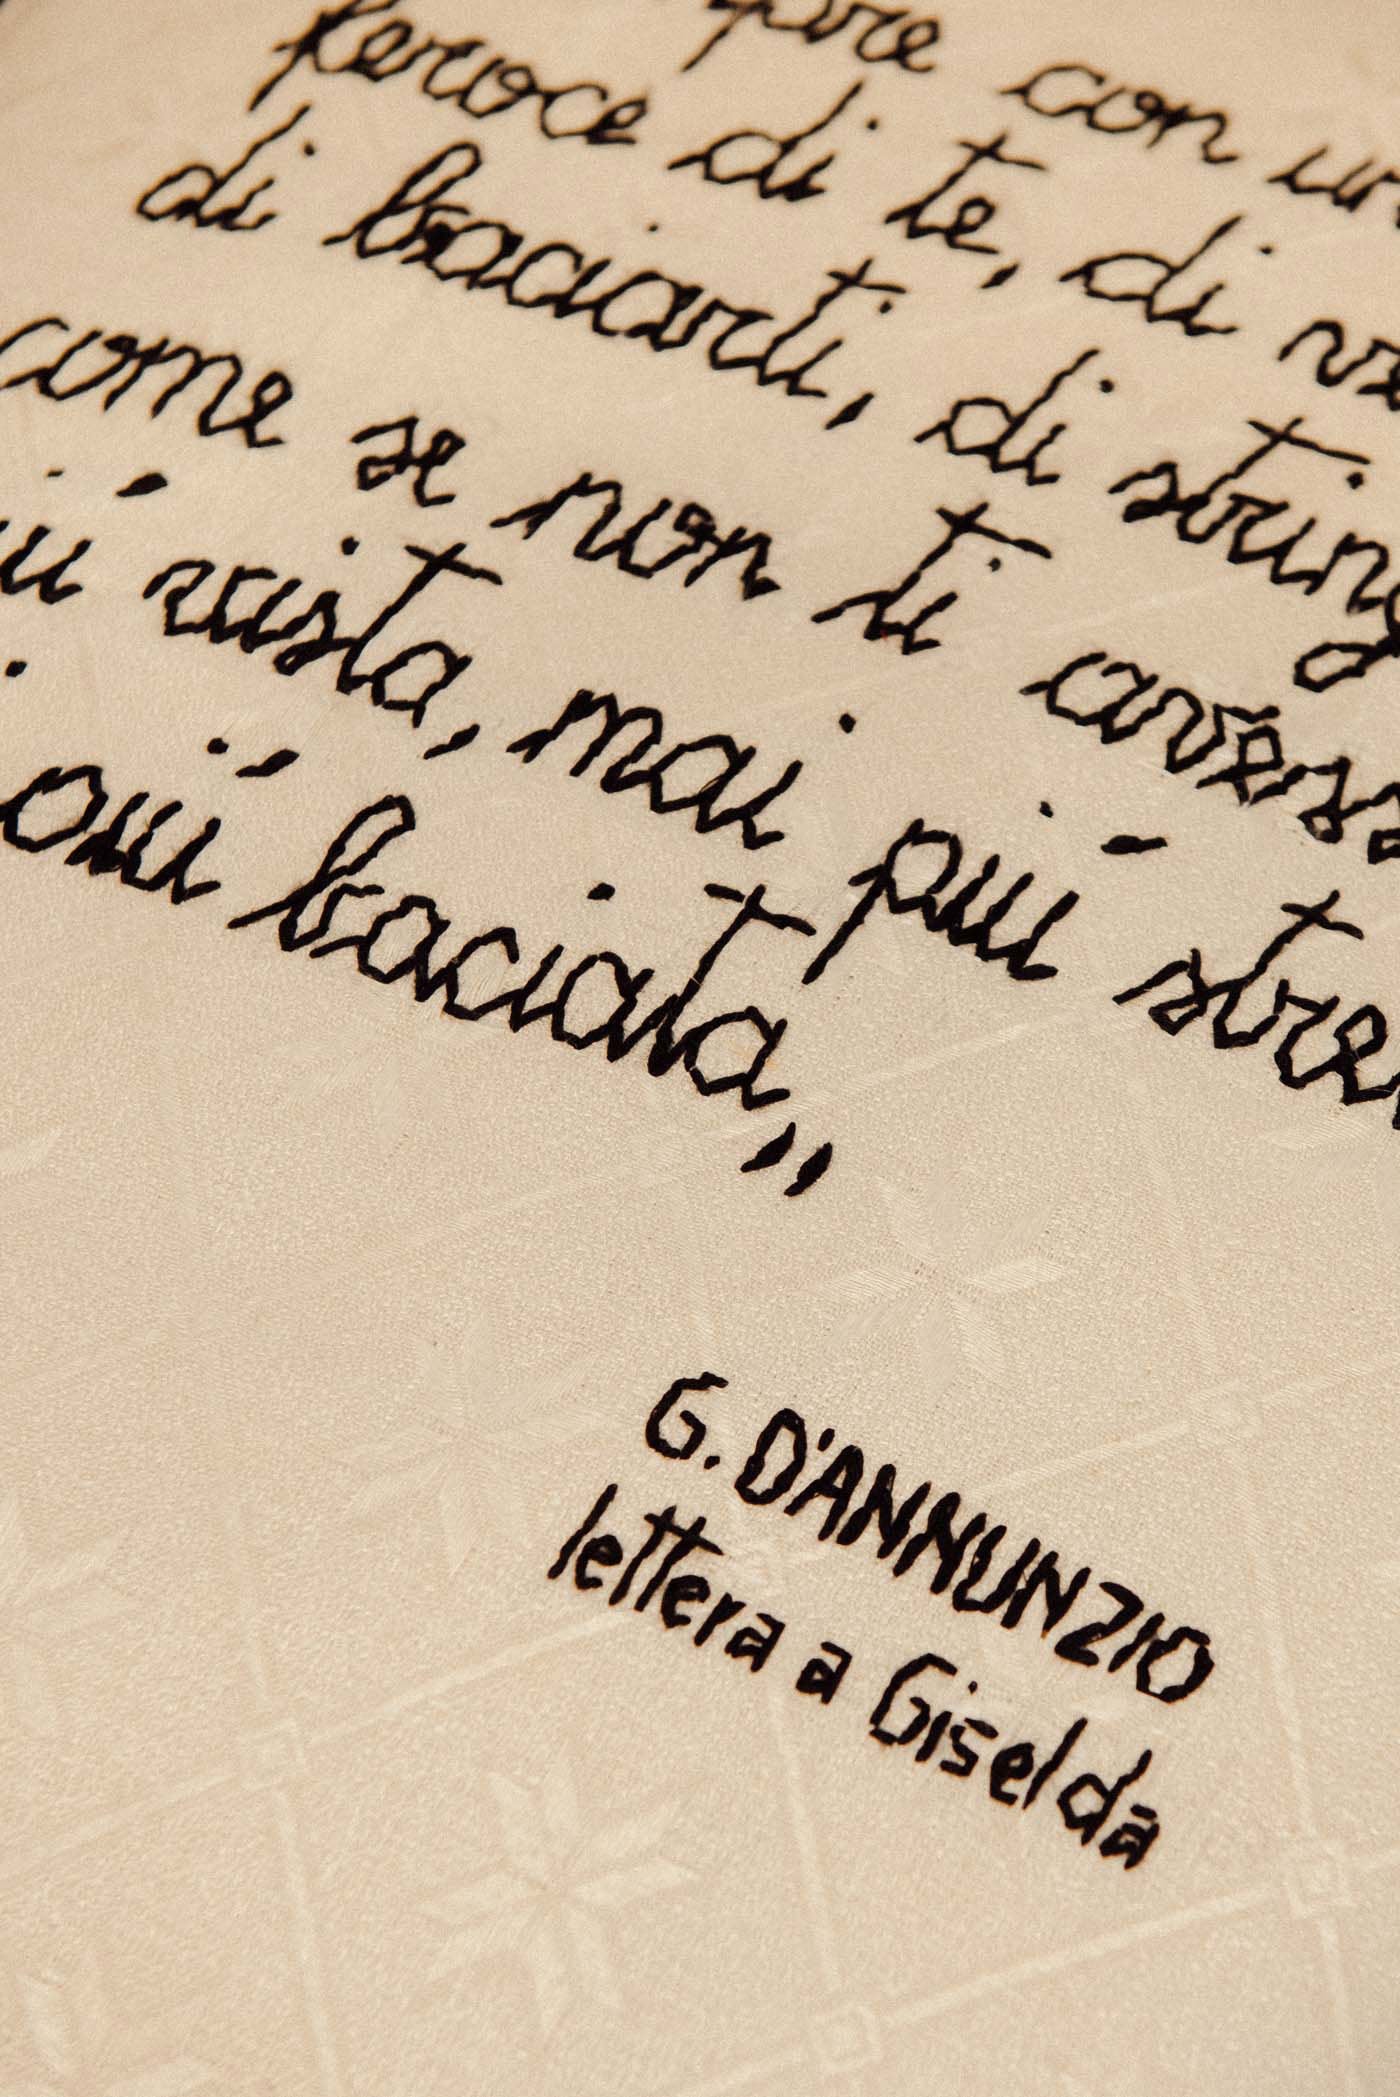 pre con un
feroce di te, di ve
di baciarti, di string
come se non ti avess
iù vista, mai più stre
più baciata,,
G. D'ANNUNZIO
lettera a Giselda